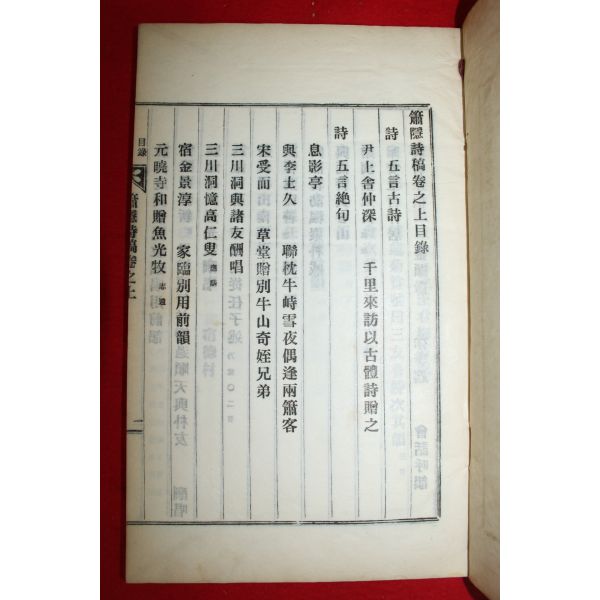 簫隱詩稿卷之上目錄
詩 五言古詩
尹上舍仲深 千里來訪以古體詩贈之
詩 五言絶句
息影亭
與李士久 聯枕牛峙雪夜偶逢兩簫客
宋受而 草堂贈別牛山奇姪兄弟
三川洞與諸友酬唱
三川洞憶高仁叟
宿金景淳 家臨別用前韻
元曉寺和贈魚光牧 志遠
目錄 簫隱詩稿卷之上 一